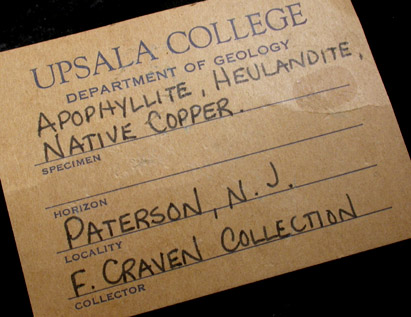 UPSALA COLLEGE
DEPARTMENT OF GEOLOGY
APOPHYLLITE, HEULANDITE,
NATIVE COPPER.
SPECIMEN
HORIZON
PATERSON, N.J.
LOCALITY
F. CRAVEN COLLECTION
COLLECTOR